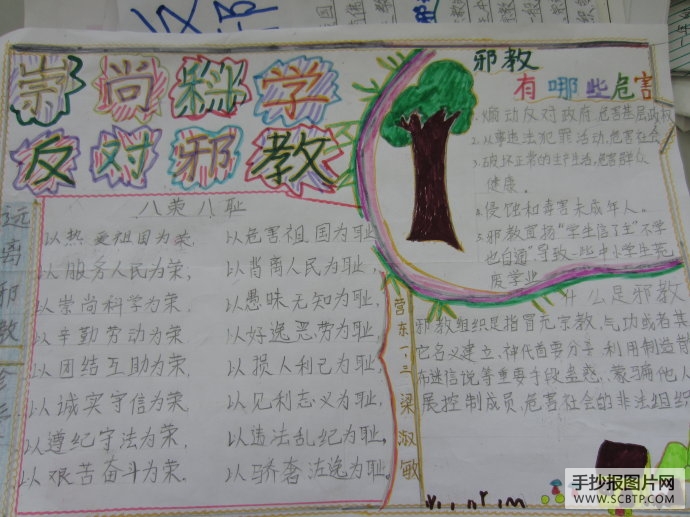 崇尚科学
反对邪教
邪教
有哪些危害
1.煽动反对政府,危害基层政权
2.从事违法犯罪活动,危害社会
3.破坏正常的生产生活,危害群众
健康。
4.侵蚀和毒害未成年人。
5.邪教宣扬"学生信了主"不学
也自通"导致一些中小学生荒
废学业
远离邪教
八荣八耻
以热爱祖国为荣, 以危害祖国为耻,
以服务人民为荣; 以背离人民为耻,
以崇尚科学为荣 以愚昧无知为耻,
以辛勤劳动为荣 以好逸恶劳为耻,
以团结互助为荣 以损人利己为耻,
以诚实守信为荣 以见利忘义为耻,
以遵纪守法为荣, 以违法乱纪为耻。
以艰苦奋斗为荣. 以骄奢淫逸为耻。
营东一.三 梁淑敏
什么是邪教
邪教组织是指冒充宗教,气功或者其
它名义建立、神代首要分子 利用制造散
布迷信说等重要手段蛊惑、蒙骗他人
展控制成员,危害社会的非法组织
手抄报图片网
WWW.SCBTP.COM